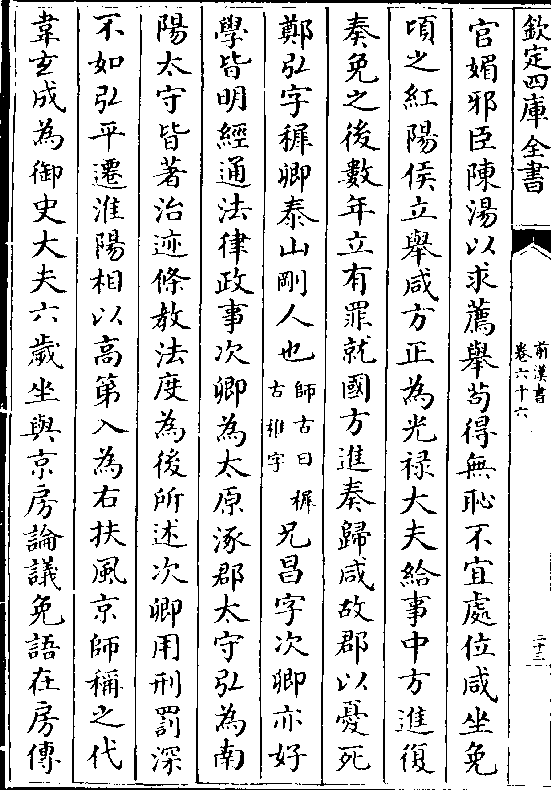 欽定四庫全書
前漢書
卷六十六
二十二
官媚邪臣陳湯以求薦舉苟得無恥不宜處位咸坐免
頃之紅陽侯立舉咸方正為光禄大夫給事中方進復
奏免之後數年立有罪就國方進奏歸咸故郡以憂死
鄭弘字穉卿泰山剛人也師古曰穉古稚字兄昌字次卿亦好
學皆明經通法律政事次卿為太原涿郡太守弘為南
陽太守皆著治迹條教法度為後所述次卿用刑罰深
不如弘平遷淮陽相以高第入為右扶風京師稱之代
韋玄成為御史大夫六歲坐與京房論議免語在房傳